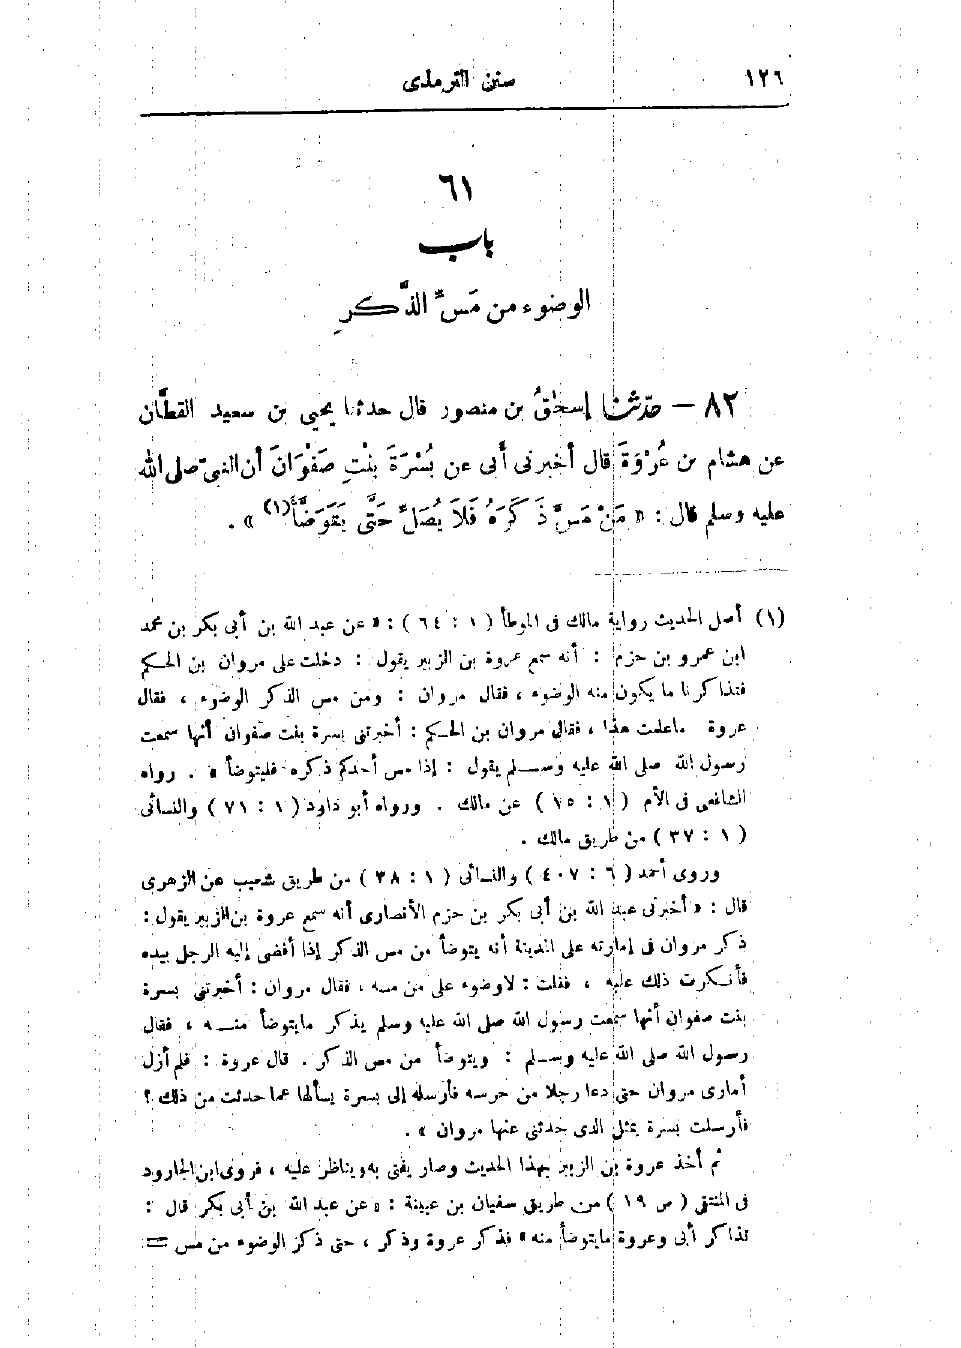 ١٢٦ سنن الترمذى
٦١
باب
الوضوء من مَسِّ الذَّكَرِ
٨٢ – حدّثنا إسحٰقُ بن منصور قال حدثنا يحيى بن سعيد القطَّان
عن هشام بن عُرْوَةَ قال أخبرنى أَبى عن بُسْرَةَ بِنْتِ صَفْوَانَ أن النبىّ صلى الله
عليه وسلم قال : « مَنْ مَسَّ ذَكَرَهُ فَلاَ يُصَلِّ حَتَّى يَتَوَضَّأَ(١) » .
(١) أصل الحديث رواية مالك فى الموطأ ( ١ : ٦٤ ) : « عن عبد الله بن أبى بكر بن محمد
ابن عمرو بن حزم : أنه سمع عروة بن الزبير يقول : دخلت على مروان بن الحكم
فتذاكرنا ما يكون منه الوضوء ، فقال مروان : ومن مس الذكر الوضوء ، فقال
عروة ماعلمت هذا ، فقال مروان بن الحكم : أخبرتنى بسرة بنت صفوان أنها سمعت
رسول الله صلى الله عليه وسلم يقول : إذا مس أحدكم ذكره فليتوضأ » . رواه
الشافعى فى الأم ( ١ : ١٥ ) عن مالك . ورواه أبو داود ( ١ : ٧١ ) والنسائى
( ١ : ٣٧ ) من طريق مالك .
وروى أحمد ( ٦ : ٤٠٧ ) والنسائى ( ١ : ٣٨ ) من طريق شعيب عن الزهرى
قال : « أخبرنى عبد الله بن أبى بكر بن حزم الأنصارى أنه سمع عروة بن الزبير يقول :
ذكر مروان فى إمارته على المدينة أنه يتوضأ من مس الذكر إذا أفضى إليه الرجل بيده
فأنكرت ذلك عليه ، فقلت : لاوضوء على من مسه ، فقال مروان : أخبرتنى بسرة
بنت صفوان أنها سمعت رسول الله صلى الله عليه وسلم يذكر مايتوضأ منه ، فقال
رسول الله صلى الله عليه وسلم : ويتوضأ من مس الذكر . قال عروة : فلم أزل
أمارى مروان حتى دعا رجلا من حرسه فأرسله إلى بسرة يسألها عما حدثت من ذلك ؟
فأرسلت بسرة بمثل الذى حدثنى عنها مروان » .
ثم أخذ عروة بن الزبير بهذا الحديث وصار يفتى به ويناظر عليه ، فروى ابن الجارود
فى المنتقى ( ص ١٩ ) من طريق سفيان بن عيينة : « عن عبد الله بن أبى بكر قال :
تذاكر أبى وعروة مايتوضأ منه » فذكر عروة وذكر ، حتى ذكر الوضوء من مس =